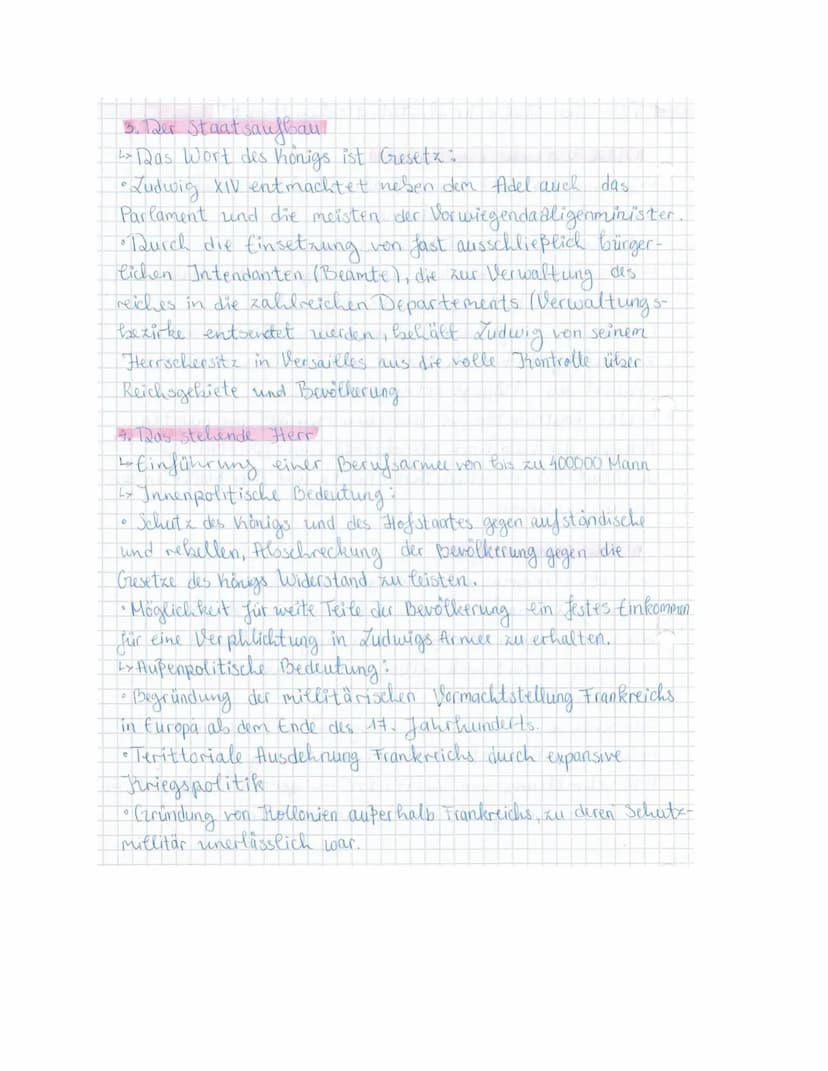 3. Der Staatsaufbau
↳ Das Wort des Königs ist Gesetz:
• Ludwig XIV entmachtet neben dem Adel auch das
Parlament und die meisten der Vorwiegendadligenminister.
• Durch die Einsetzung von fast ausschließlich bürger-
lichen Intendanten (Beamte), die zur Verwaltung des
reiches in die zahlreichen Departements (Verwaltungs-
bezirke entsendet werden, behält Ludwig von seinem
Herrschersitz in Versailles aus die volle Kontrolle über
Reichsgebiete und Bevölkerung
4. Das stehende Herr
↳ Einführung einer Berufsarmee von bis zu 400000 Mann
↳ Innenpolitische Bedeutung:
• Schutz des Königs und des Hofstaates gegen aufständische
und rebellen, Abschreckung der Bevölkerung gegen die
Gesetze des Königs Widerstand zu leisten.
• Möglichkeit für weite Teile der Bevölkerung ein festes Einkommen
für eine Verphlichtung in Ludwigs Armee zu erhalten.
↳ Außenpolitische Bedeutung:
• Begründung der millitärischen Vormachtstellung Frankreichs
in Europa ab dem Ende des 17. Jahrhunderts.
• Terittoriale Ausdehnung Frankreichs durch expansive
Kriegspolitik
• Gründung von Kollonien außerhalb Frankreichs, zu deren Schutz-
millitär unerlässlich war.